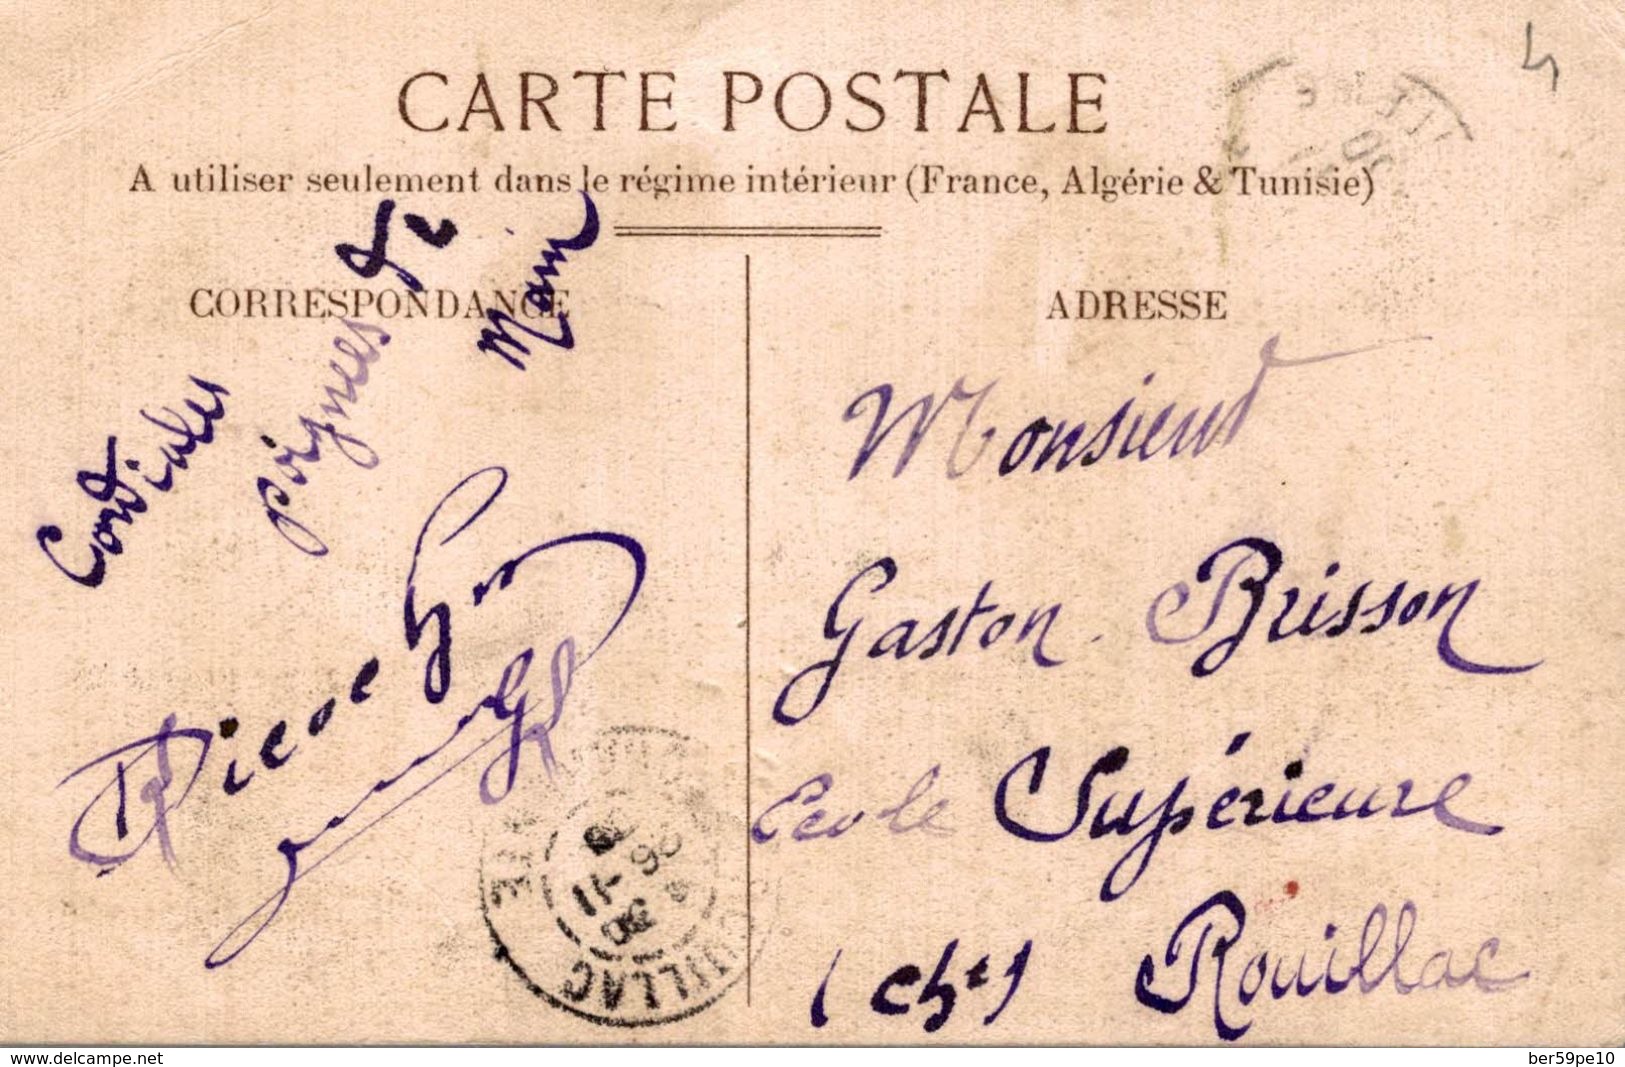 CARTE POSTALE
A utiliser seulement dans le régime intérieur (France, Algérie & Tunisie)
CORRESPONDANCE
Cordiales
poignées de
Main
ADRESSE
Monsieur
Gaston Brisson
Ecole Supérieure
(Chte) Rouillac
ROUILLAC
4
www.delcampe.net
ber59pe10